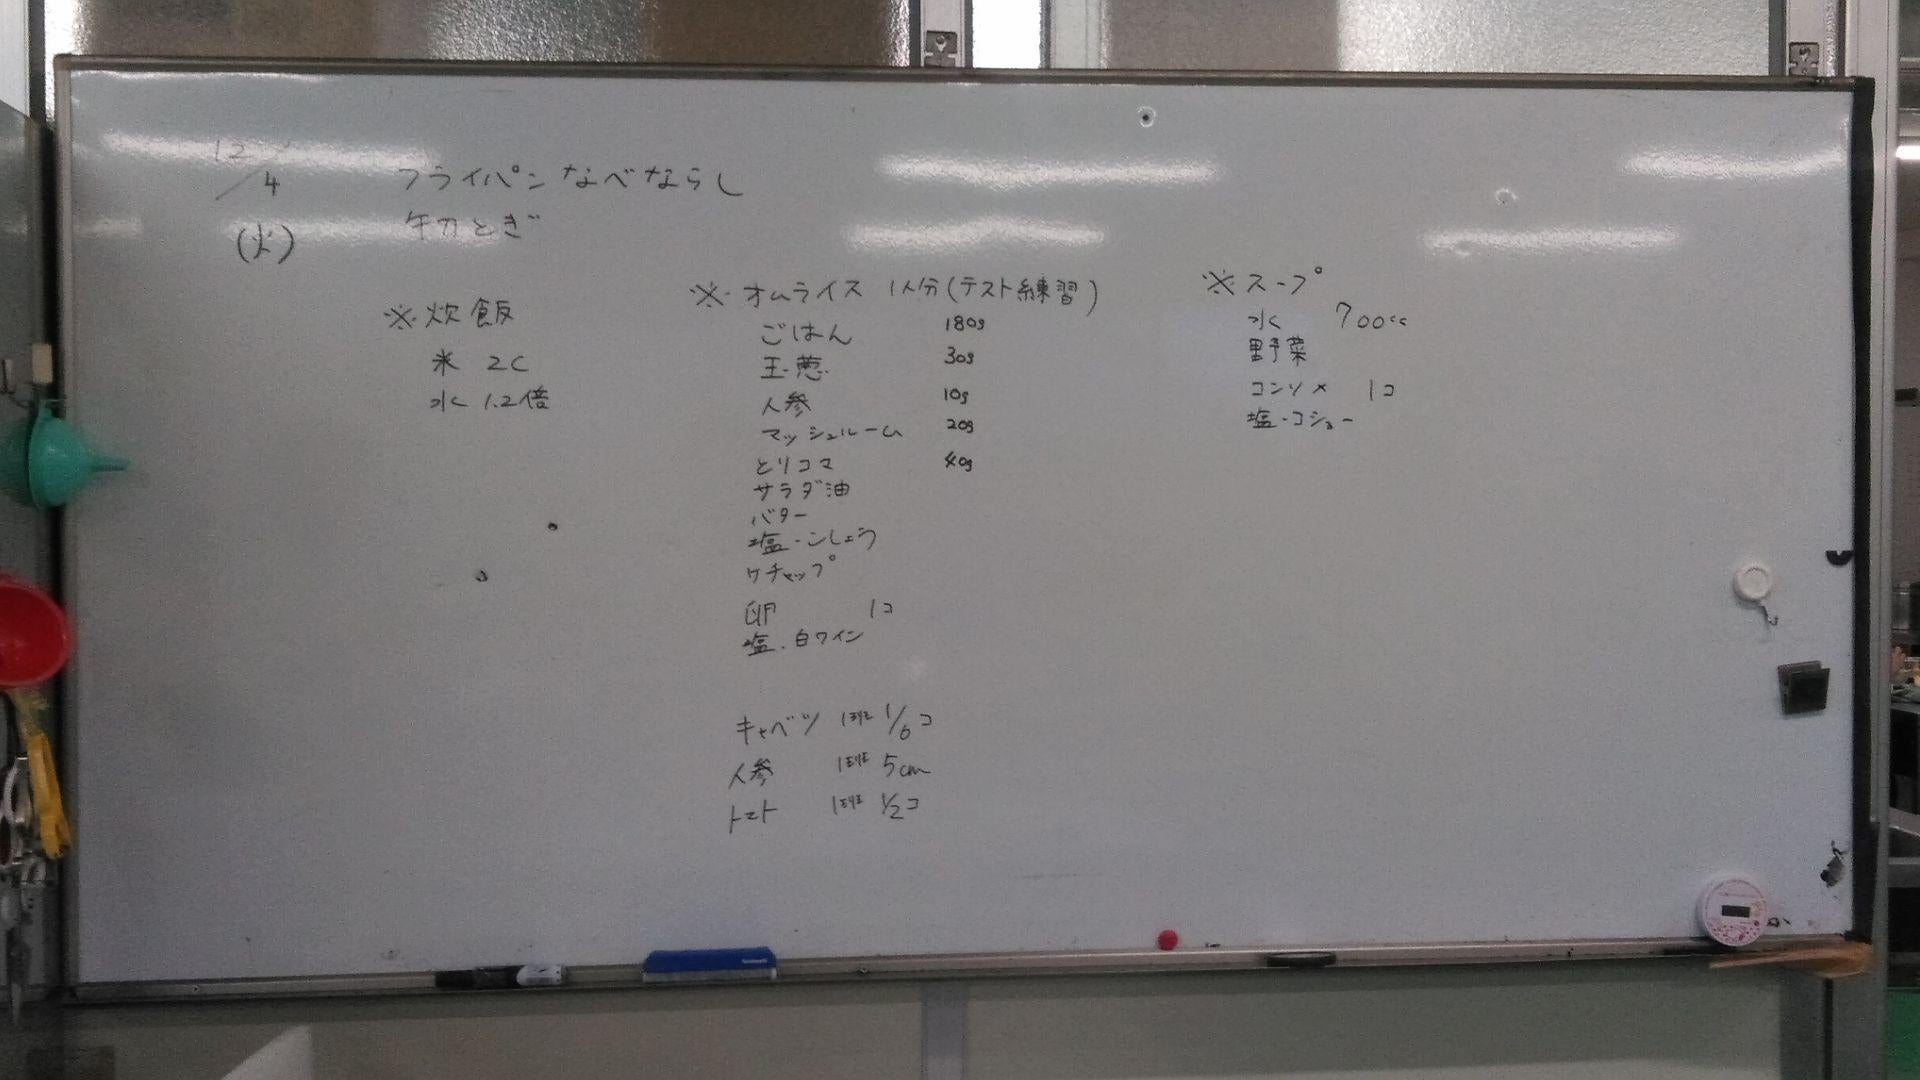 12/4
(火)
フライパンなべならし
牛刀とぎ
※炊飯
米 2C
水 1.2倍
※オムライス 1人分(テスト練習)
ごはん 180g
玉葱 30g
人参 10g
マッシュルーム 20g
とりコマ 40g
サラダ油
バター
塩・こしょう
ケチャップ
卵 1コ
塩・白ワイン
キャベツ 1班 1/6コ
人参 1班 5cm
トマト 1班 1/2コ
※スープ
水 700cc
野菜
コンソメ 1コ
塩・コショー